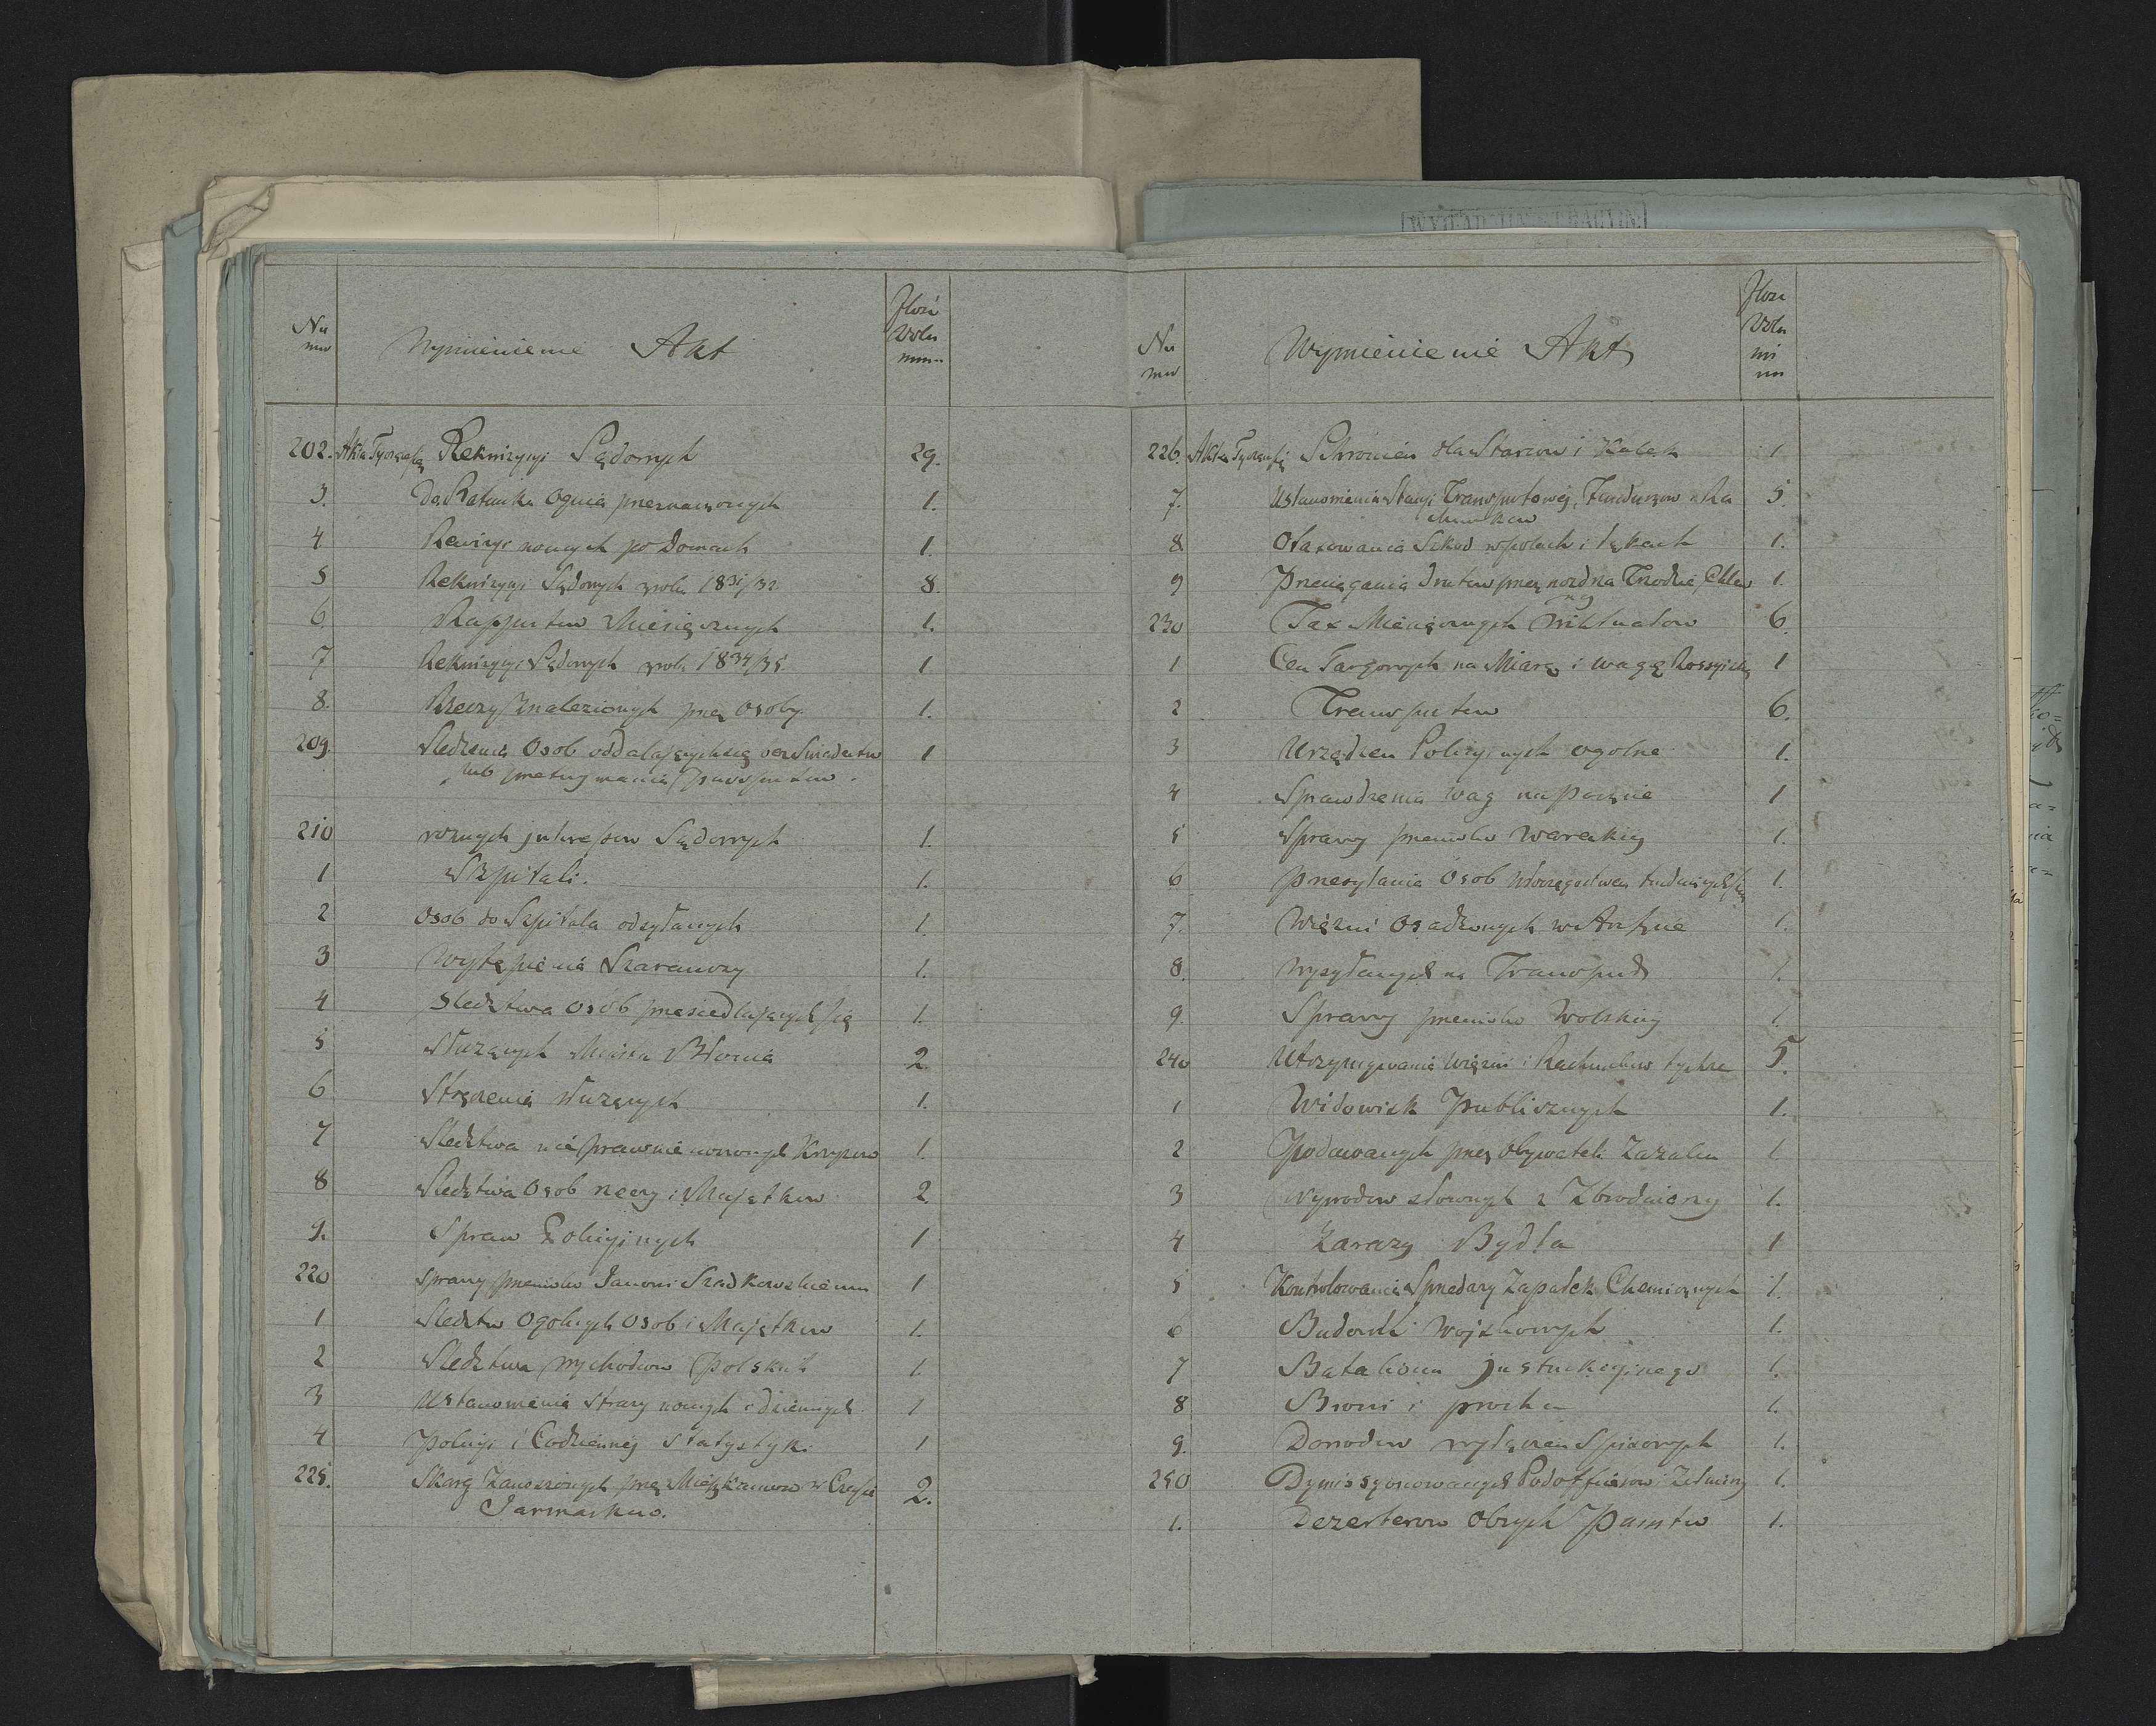 Nu
mer
Wymienienie Akt
Ilość
Volu
minu
202. Akta Tyczące się Rekwizycyi Sądowych 29.
3. Do Ratunku Ognia przeznaczonych 1.
4 Rewizyi nocnych po Domach 1.
5 Rekwizycyi Sądowych z roku 1831/32 8.
6. Rapportow Miesięcznych 1.
7 Rekwizycyi Sądowych z roku 1834/35 1
8. Rzeczy Znalezionych przez Osoby 1.
209. Sledzenia Osob oddalających się bez Swiadectw 1
lub paszportow.
210 roznych interessow Sądowych 1.
1 Szpitali. 1.
2 Osob do Szpitala odsyłanych 1.
3 Wytępienia Szaranczy 1.
4 Sledztwa Osób przesiedlających się 1.
5 Służących Miasta Błonia 2
6 Stręczenia służących 1.
7 Sledztwa nieprawnie 1.
8 Sledztwa Osob rzeczy i Majątkow 2
9. Spraw Policyjnych 1
220 Sprawy przeciwko Janowi Szadkowskiemu 1
1 Sledztw Ogolnych Osob i Majątkow 1.
2 Sledztwa wychodcow Polskich 1.
3 Ustanowienia Strazy nocnych i dziennych 1
4 Policyi i Codziennej statystyki 1
225. Skarg Zanoszonych przez Mieszkancow w Czasie 2.
Jarmarkow.
Nu
mer
Wymienienie Akt
Ilość
Volu
mi
nu
226. Akta Tyczące się Schronien dla Starcow i Kalek 1
7. Ustanowienia Stacyi Transportowej, Funduszow i Ra 5.
chunkow
8 Otaxowania Szkod w polach i łąkach 1.
9 Przeciągania drutow przez nozdrza Trzodzie Chlew 1.
nej
230 Tax Miesięcznych Wiktuałow 6.
1 Cen Targowych na Miarę i wagę Rossyiską 1
2 Transportow 6.
3 Urządzen Policyjnych ogolne 1.
4 Sprawdzenia wag na poczcie 1
5 Sprawy przeciwko Wareckiey 1.
6 Przesyłania Osob Włoczęgostwem trudniących się 1.
7. Więzni Osadzonych w Areszcie 1.
8. Wysyłanych na Transport 1.
9. Sprawy przeciwko Wolskiey 1
240 Utrzymywania Więzni i Rachunkow tychze 5.
1 Widowisk Publicznych 1.
2 Podawanych przez Obywateli Zazalen 1
3 Wywodow słownych z Zbrodniarzy 1.
4 Zarazy Bydła 1
5 Kontrolowania Sprzedazy Zapałek Chemicznych 1.
6 Budowli Wojskowych 1.
7 Batalionu Instrukcyjnego 1.
8 Broni i prochu 1.
9. Dowodow wyłączen Spisowych 1.
250 Dymissyonowanych Podofficerow i Zołnierzy 1.
1. Dezerterow Obcych Panstw 1.